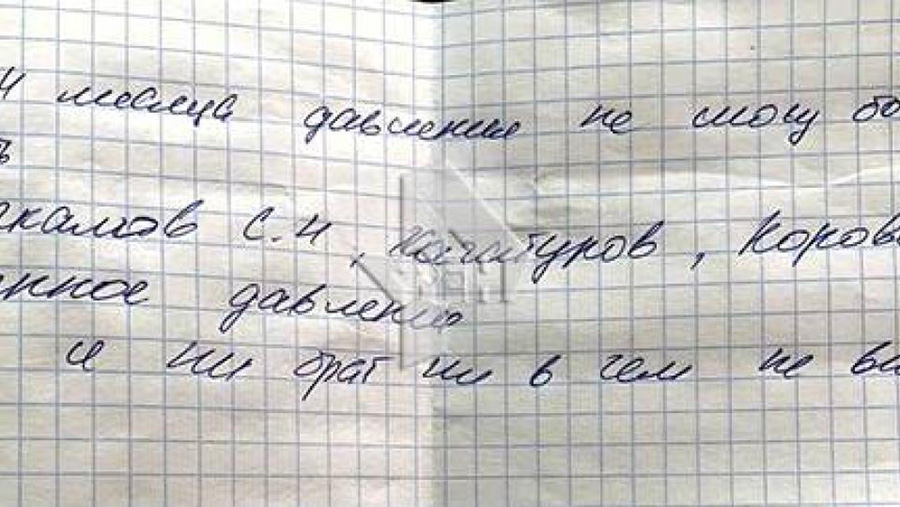 4 месяца давление не могу бо
ь
скалов С.Н, Корова
нное давление
и ни брат ни в чем не ви